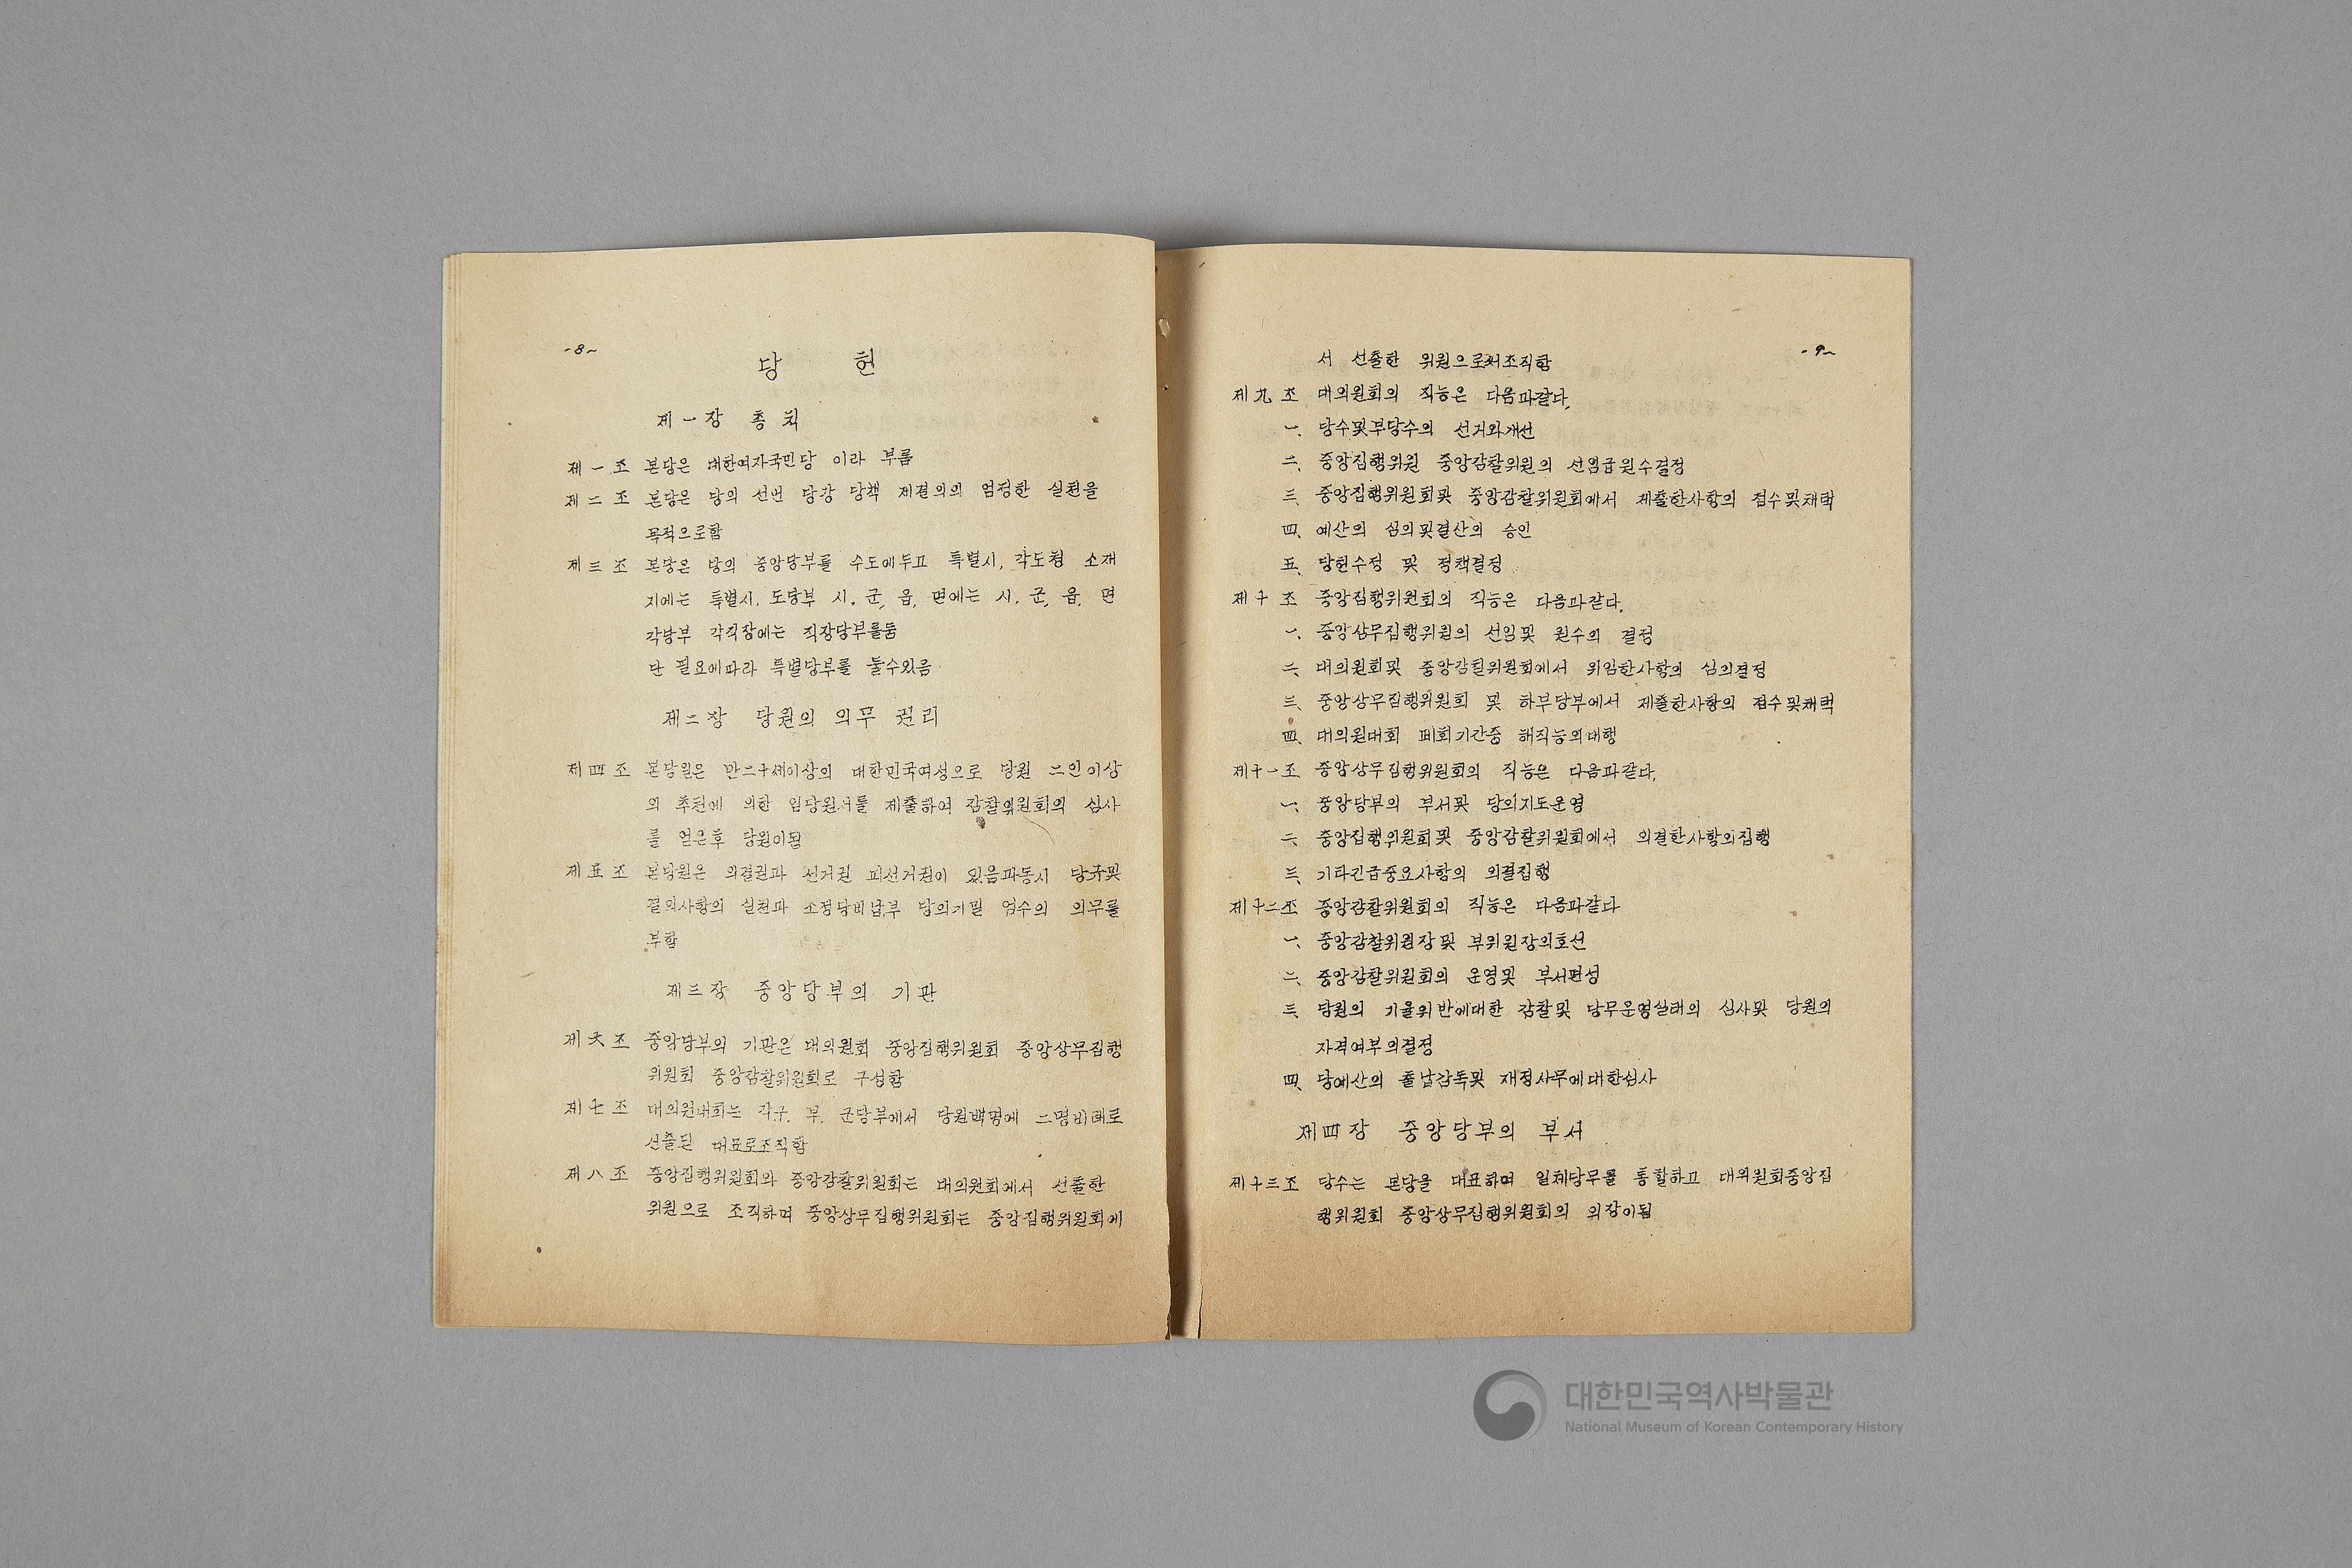 -8-
당 헌
제一장 총 칙
제 一 조 본당은 대한여자국민당 이라 부름
제 二 조 본당은 당의 선언 당강 당책 제결의의 엄정한 실천을
목적으로함
제 三 조 본당은 당의 중앙당부를 수도에두고 특별시, 각도청 소재
지에는 특별시, 도당부 시, 군, 읍, 면에는 시, 군, 읍, 면
각당부 각직장에는 직장당부를둠
단 필요에따라 특별당부를 둘수있음
제二장 당원의 의무 권리
제 四 조 본당원은 만二十세이상의 대한민국여성으로 당원 二인이상
의 추천에 의한 입당원서를 제출하여 감찰위원회의 심사
를 얻은후 당원이됨
제 五 조 본당원은 의결권과 선거권 피선거권이 있음과동시 당규및
결의사항의 실천과 소정당비납부 당의기밀 엄수의 의무를
부함
제三장 중앙당부의 기관
제 六 조 중앙당부의 기관은 대의원회 중앙집행위원회 중앙상무집행
위원회 중앙감찰위원회로 구성함
제 七 조 대의원대회는 각구, 부, 군당부에서 당원백명에 二명비례로
선출된 대표로조직함
제 八 조 중앙집행위원회와 중앙감찰위원회는 대의원회에서 선출한
위원으로 조직하며 중앙상무집행위원회는 중앙집행위원회에
-9-
서 선출한 위원으로서조직함
제 九 조 대의원회의 직능은 다음과같다.
一、 당수및부당수의 선거와개선
二、 중앙집행위원 중앙감찰위원의 선임급원수결정
三、 중앙집행위원회및 중앙감찰위원회에서 제출한사항의 접수및채택
四、 예산의 심의및결산의 승인
五、 당헌수정 및 정책결정
제 十 조 중앙집행위원회의 직능은 다음과같다.
一、 중앙상무집행위원의 선임및 원수의 결정
二、 대의원회및 중앙감찰위원회에서 위임한사항의 심의결정
三、 중앙상무집행위원회 및 하부당부에서 제출한사항의 접수및채택
四、 대의원대회 폐회기간중 해직능의대행
제十一조 중앙상무집행위원회의 직능은 다음과같다.
一、 중앙당부의 부서및 당의지도운영
二、 중앙집행위원회및 중앙감찰위원회에서 의결한사항의집행
三、 기타긴급중요사항의 의결집행
제十二조 중앙감찰위원회의 직능은 다음과같다
一、 중앙감찰위원장및 부위원장의호선
二、 중앙감찰위원회의 운영및 부서편성
三、 당원의 기율위반에대한 감찰및 당무운영실태의 심사및 당원의
자격여부의결정
四、 당예산의 출납감독및 재정사무에대한심사
제四장 중앙당부의 부서
제十三조 당수는 본당을 대표하며 일체당무를 통할하고 대의원회중앙집
행위원회 중앙상무집행위원회의 의장이됨
대한민국역사박물관
National Museum of Korean Contemporary History